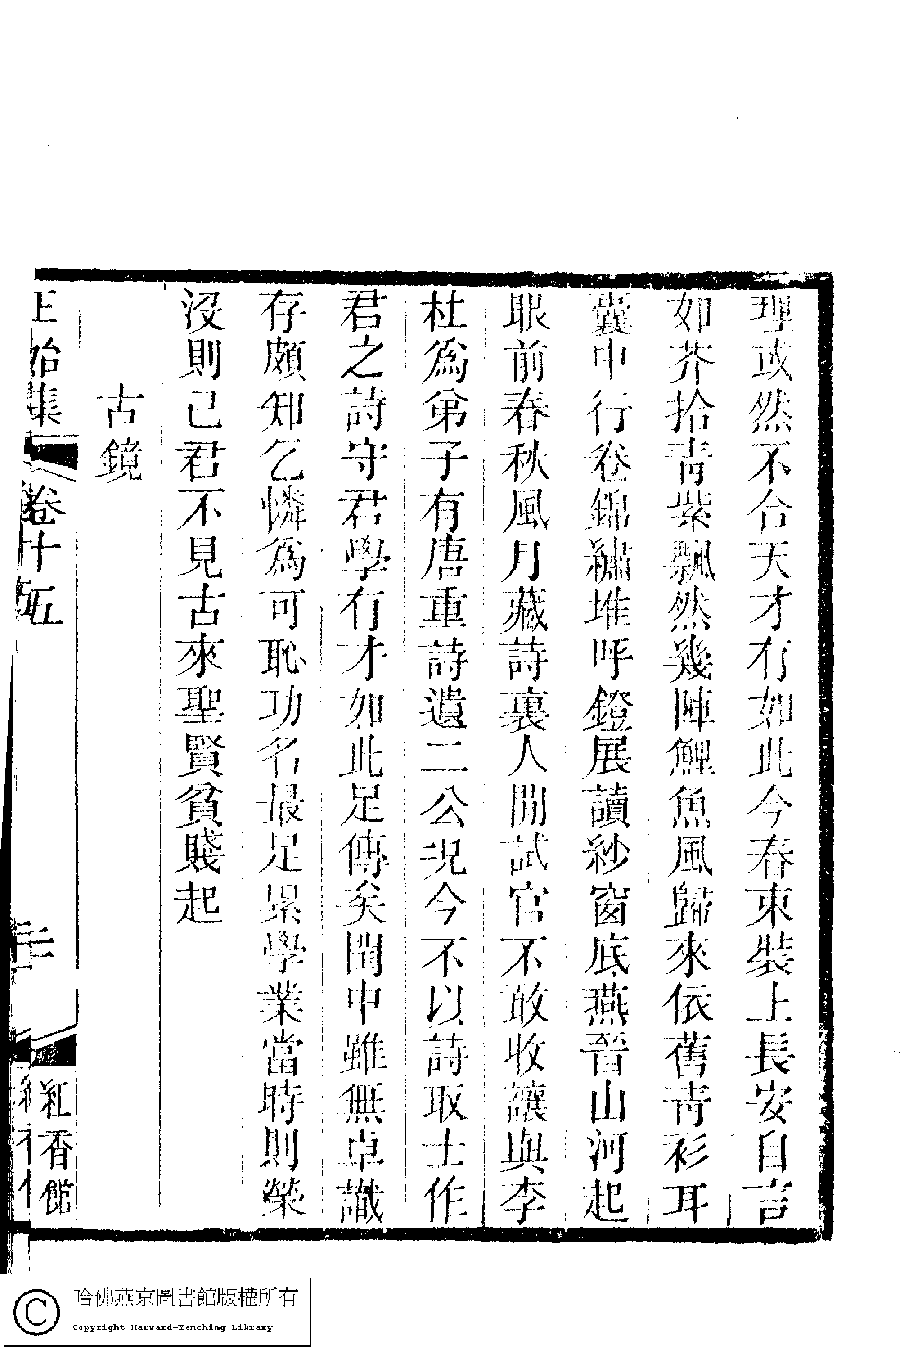 理或然不合天才有如此今春束裝上長安自言
如芥拾青紫飄然幾陣鯉魚風歸來依舊青衫耳
囊中行卷錦繡堆呼鐙展讀紗窗底燕晉山河起
眼前春秋風月藏詩裏人間試官不敢收讓與李
杜爲弟子有唐重詩遺二公况今不以詩取士作
君之詩守君學有才如此足傳矣閨中雖無卓識
存頗知乞憐爲可恥功名最足累學業當時則榮
沒則已君不見古來聖賢貧賤起
古鏡
正始集
卷十五
紅香館
哈佛燕京圖書館版權所有
Copyright Harvard-Yenching Library